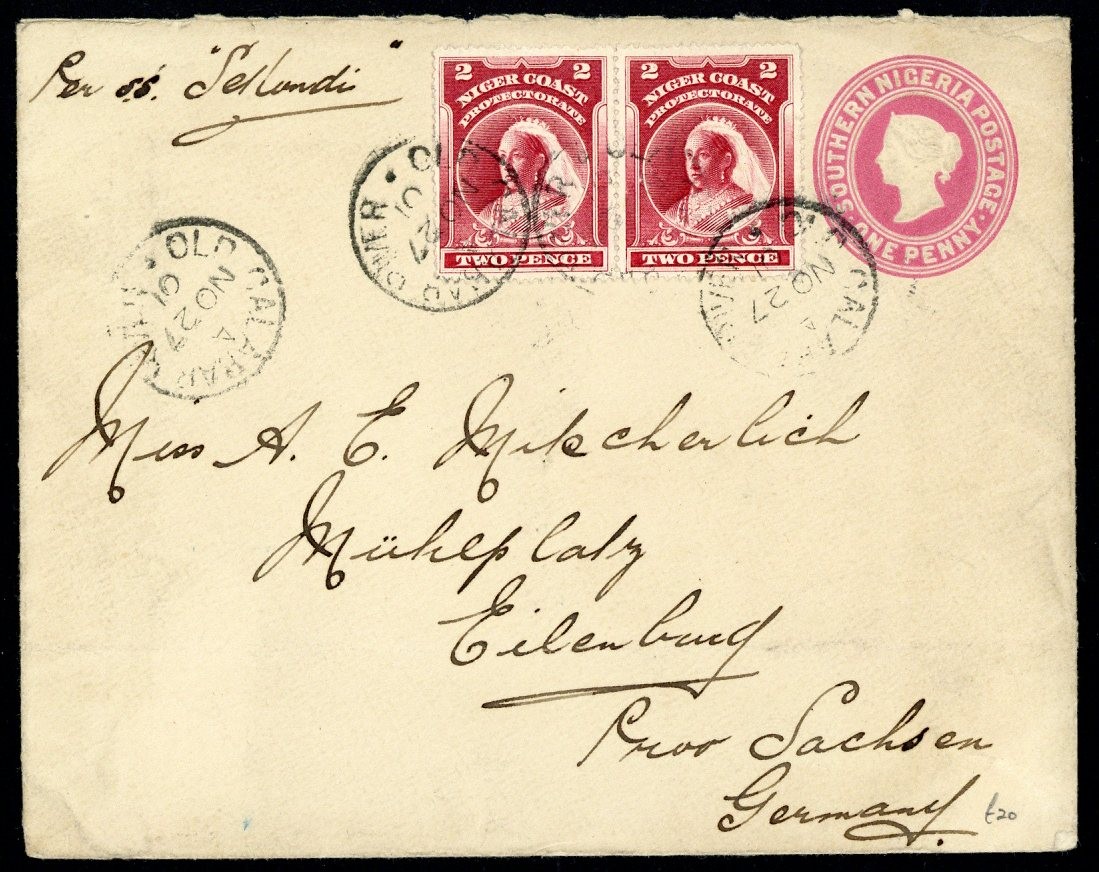 Per ss. "Sekondi"
2 2
NIGER COAST
PROTECTORATE
TWO PENCE
2 2
NIGER COAST
PROTECTORATE
TWO PENCE
SOUTHERN NIGERIA POSTAGE
ONE PENNY
OLD CALABAR RIVER
NO 27
01
OLD CALABAR
A
NO 27
01
OLD CALA
A
NO 27
Miss A. E. Mitscherlich
Mühlplatz
Eilenburg
Prov Sachsen
Germany.
£20